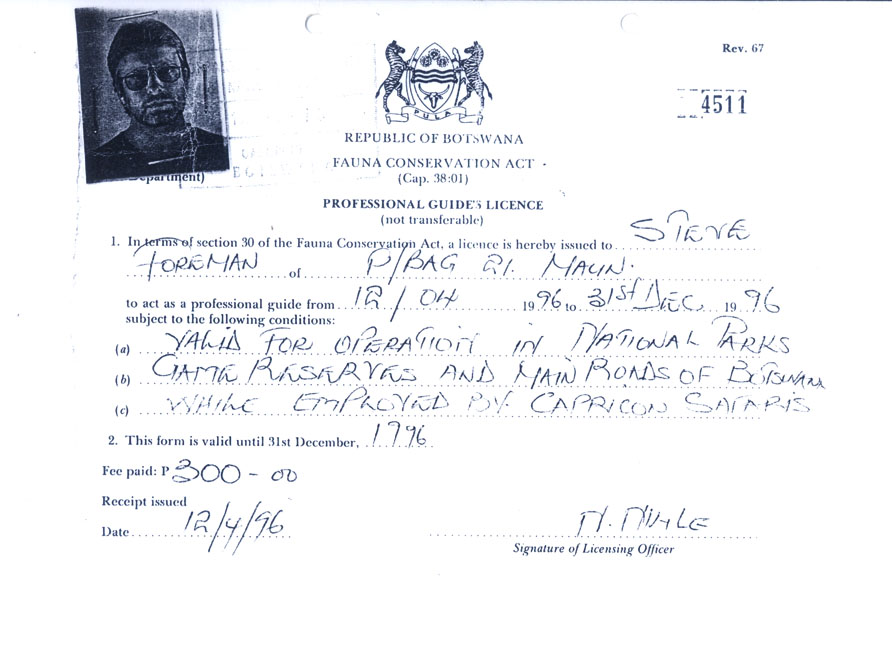 Rev. 67
4511
PULA
REPUBLIC OF BOTSWANA
FAUNA CONSERVATION ACT
(Cap. 38:01)
Department)
PROFESSIONAL GUIDE'S LICENCE
(not transferable)
1. In terms of section 30 of the Fauna Conservation Act, a licence is hereby issued to STEVE
FOREMAN of P/BAG 21. MAUN.
to act as a professional guide from 12/04 1996 to 31st DEC 1996
subject to the following conditions:
(a) VALID FOR OPERATION IN NATIONAL PARKS
(b) GAME RESERVES AND MAIN ROADS OF BOTSWANA
(c) WHILE EMPLOYED BY CAPRICON SAFARIS
2. This form is valid until 31st December, 1996
Fee paid: P 300-00
Receipt issued
Date 12/4/96
Signature of Licensing Officer